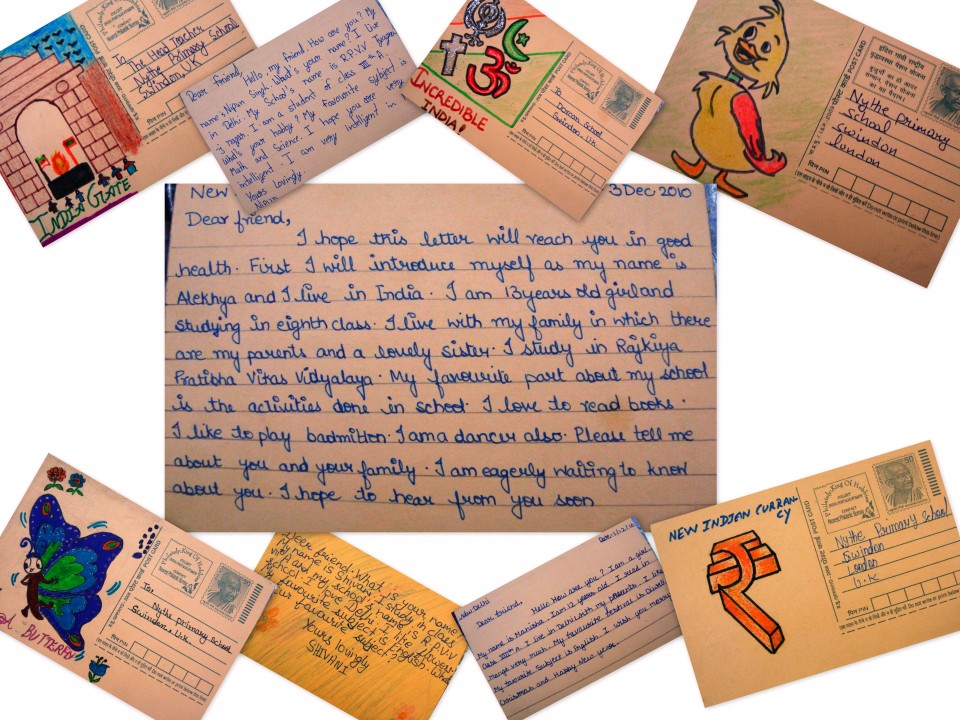 To
The Head Teacher
Nythe Primary School
Swindon, UK
POST CARD
INDIA GATE
Dear friend,
Hello, my friend. How are you? My
name Nipun Singh. What's your name? I live
in Delhi. My School's name is R.P.V.V Tyagraj
Nagar. I am a student of class
What's your hobby? My Favourite Subject is
Math and Science. I hope you are very
intelligent. I am very intelligent in
Yours Lovingly.
Nipun
INCREDIBLE
INDIA!
To
Dorcan School
Swindon. U.K.
POST CARD
पिन PIN
POST CARD
इंदिरा गांधी राष्ट्रीय
वृद्धावस्था पेंशन योजना
Nythe primary
school
swindon
london
पिन PIN
New
3 Dec 2010
Dear friend,
I hope this letter will reach you in good
health. First I will introduce myself as my name is
Alekhya and I live in India. I am 13 years old girl and
studying in eighth class. I live with my family in which there
are my parents and a lovely sister. I study in Rajkiya
Pratibha Vikas Vidyalaya. My favourite part about my school
is the activities done in school. I love to read books.
I like to play badmitton. I am a dancer also. Please tell me
about you and your family. I am eagerly waiting to know
about you. I hope to hear from you soon
BUTTERFLY
POST CARD
To,
Nythe primary School
Swindon, U.K.
पिन PIN
friend. What is your name
name is Shivani. I study in class
and my school's name is R.P.V.V
School. I love Delhi & the flowers
My favourite subject is English. What
your favourite subject
Yours lovingly
SHIVANI
New Delhi
Date: 1/12/10
Dear friend,
Hello How are you? I am a girl.
My name is Manisha. I am 12 years old. I read in
class I live in Delhi with my parents. I like
mango very much. My favourite festival is Diwali
My favourite subject is English. I wish you merry
christmas and Happy New year.
NEW INDIEN CURRAN-
CY
₹
POST CARD
50
Nythe Primary School
Swindon
London
U.K
पिन PIN